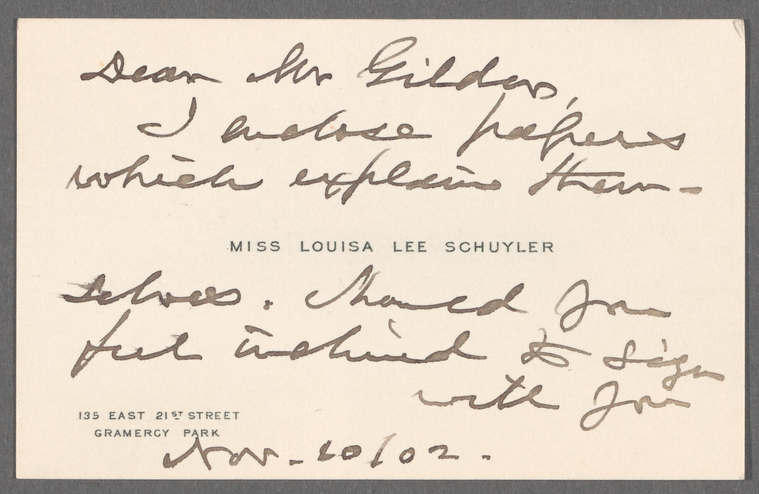 Dear Mr Gilder,
I enclose papers
which explain them-
MISS LOUISA LEE SCHUYLER
selves. Should you
feel inclined to sign
will you
135 EAST 21ST STREET
GRAMERCY PARK
Nov. 20/02.